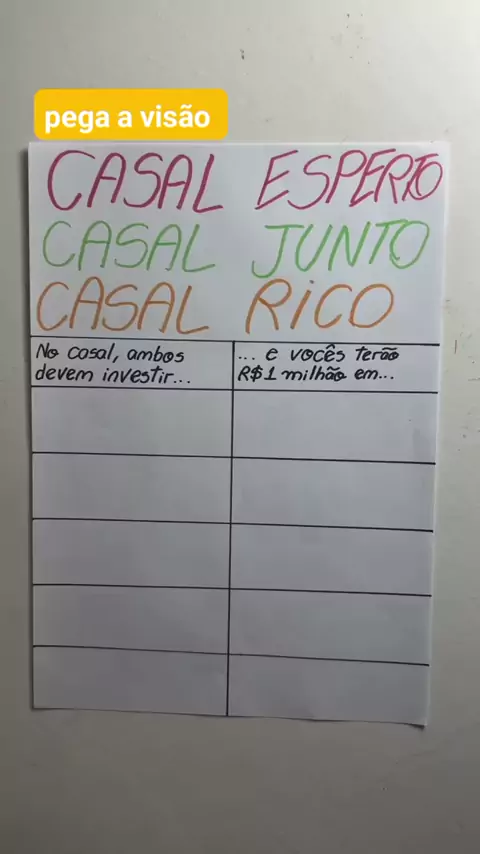 pega a visão
CASAL ESPERTO
CASAL JUNTO
CASAL RICO
No casal, ambos
devem investir...
... e vocês terão
R$1 milhão em...